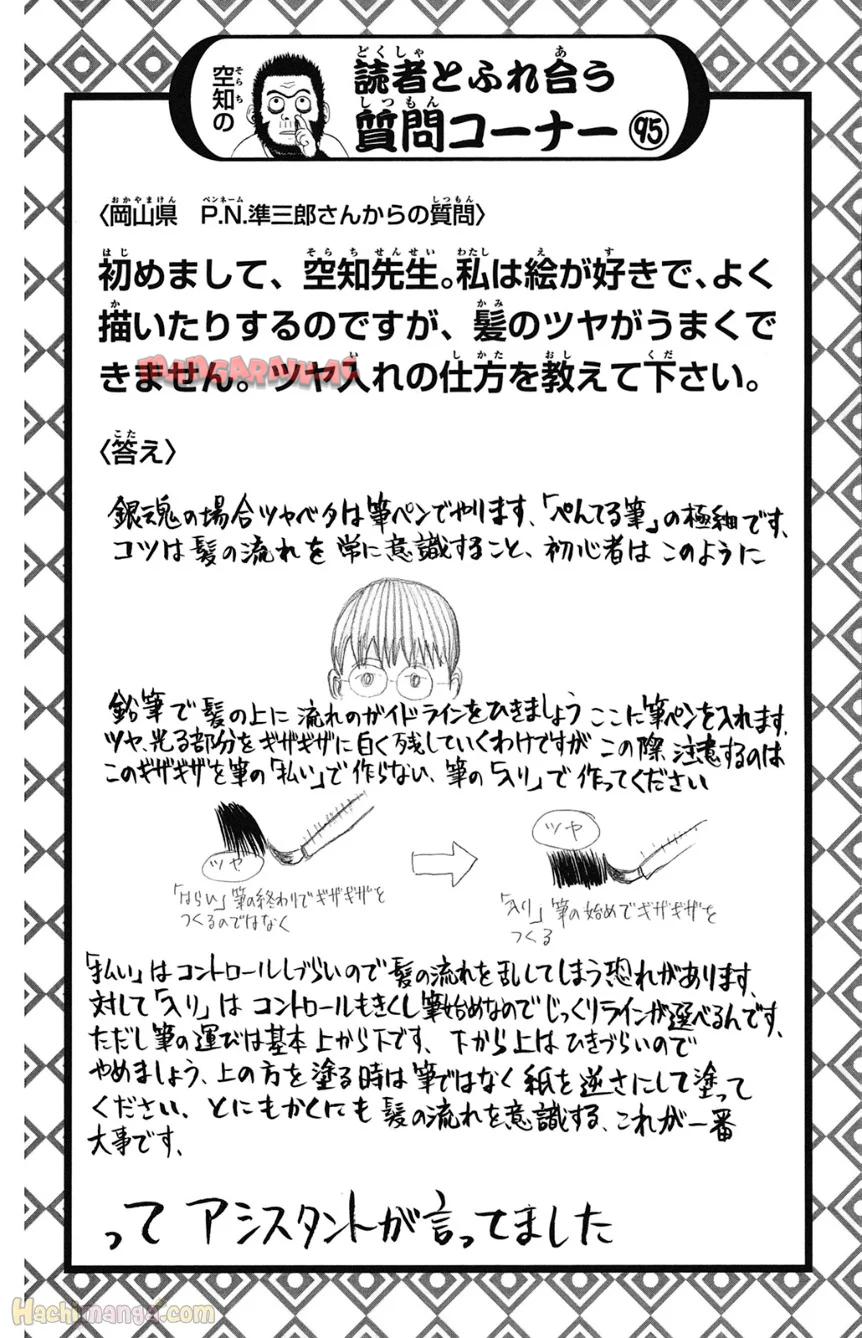 空知の
読者とふれ合う
質問コーナー 95
〈岡山県 P.N.準三郎さんからの質問〉
初めまして、空知先生。私は絵が好きで、よく
描いたりするのですが、髪のツヤがうまくで
きません。ツヤ入れの仕方を教えて下さい。
〈答え〉
銀魂の場合ツヤベタは筆ペンでやります、「ぺんてる筆」の極細です、
コツは髪の流れを常に意識すること、初心者はこのように
鉛筆で髪の上に流れのガイドラインをひきましょう ここに筆ペンを入れます、
ツヤ、光る部分をギザギザに白く残していくわけですが この際 注意するのは
このギザギザを筆の「払い」で作らない、筆の「入り」で作ってください
ツヤ
ツヤ
「はらい」筆の終わりでギザギザを
つくるのではなく
「入り」筆の始めでギザギザを
つくる
「払い」はコントロールしづらいので髪の流れを乱してしまう恐れがあります、
対して「入り」はコントロールもきくし筆始めなのでじっくりラインが選べるんです、
ただし筆の運びは基本上から下です、下から上はひきづらいので
やめましょう、上の方を塗る時は筆ではなく紙を逆さにして塗って
ください、とにもかくにも髪の流れを意識する、これが一番
大事です、
って アシスタントが言ってました
Hachimanga.com